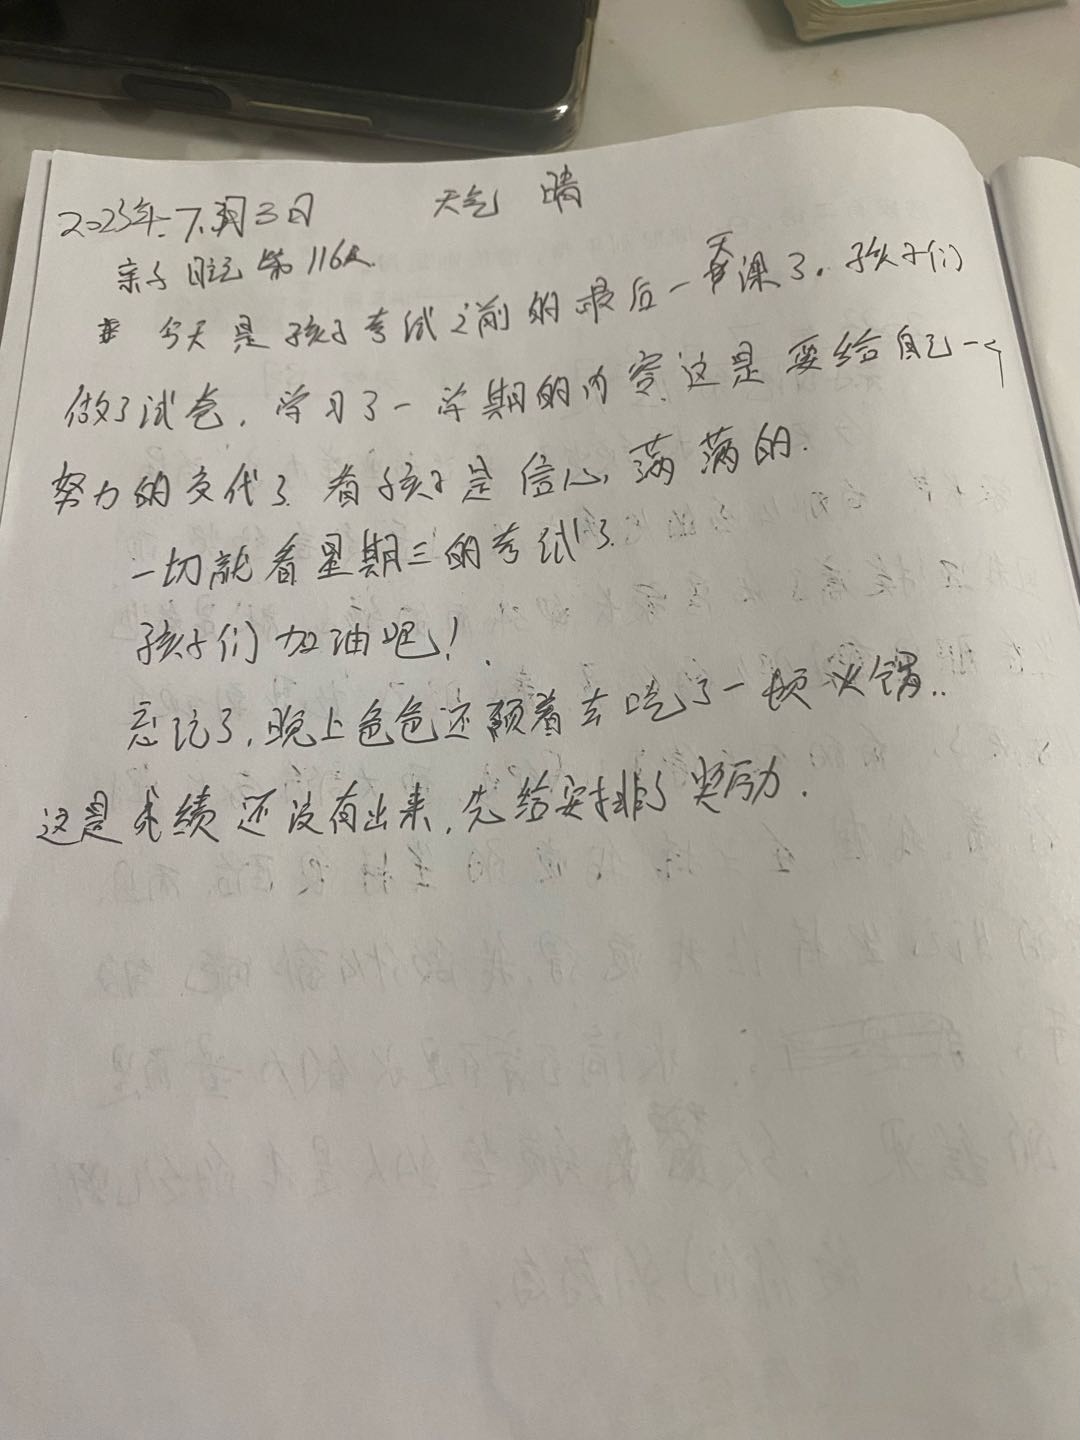 2023年7月3日 天气 晴
亲子日记第116天
今天是孩子考试之前的最后一天课了。孩子们
做了试卷，学习了一学期的内容，这是要给自己一个
努力的交代了。看孩子是信心满满的.
一切就看星期三的考试了.
孩子们加油吧！.
忘记了，晚上爸爸还领着去吃了一顿火锅..
这是成绩还没有出来，先给安排了奖励.